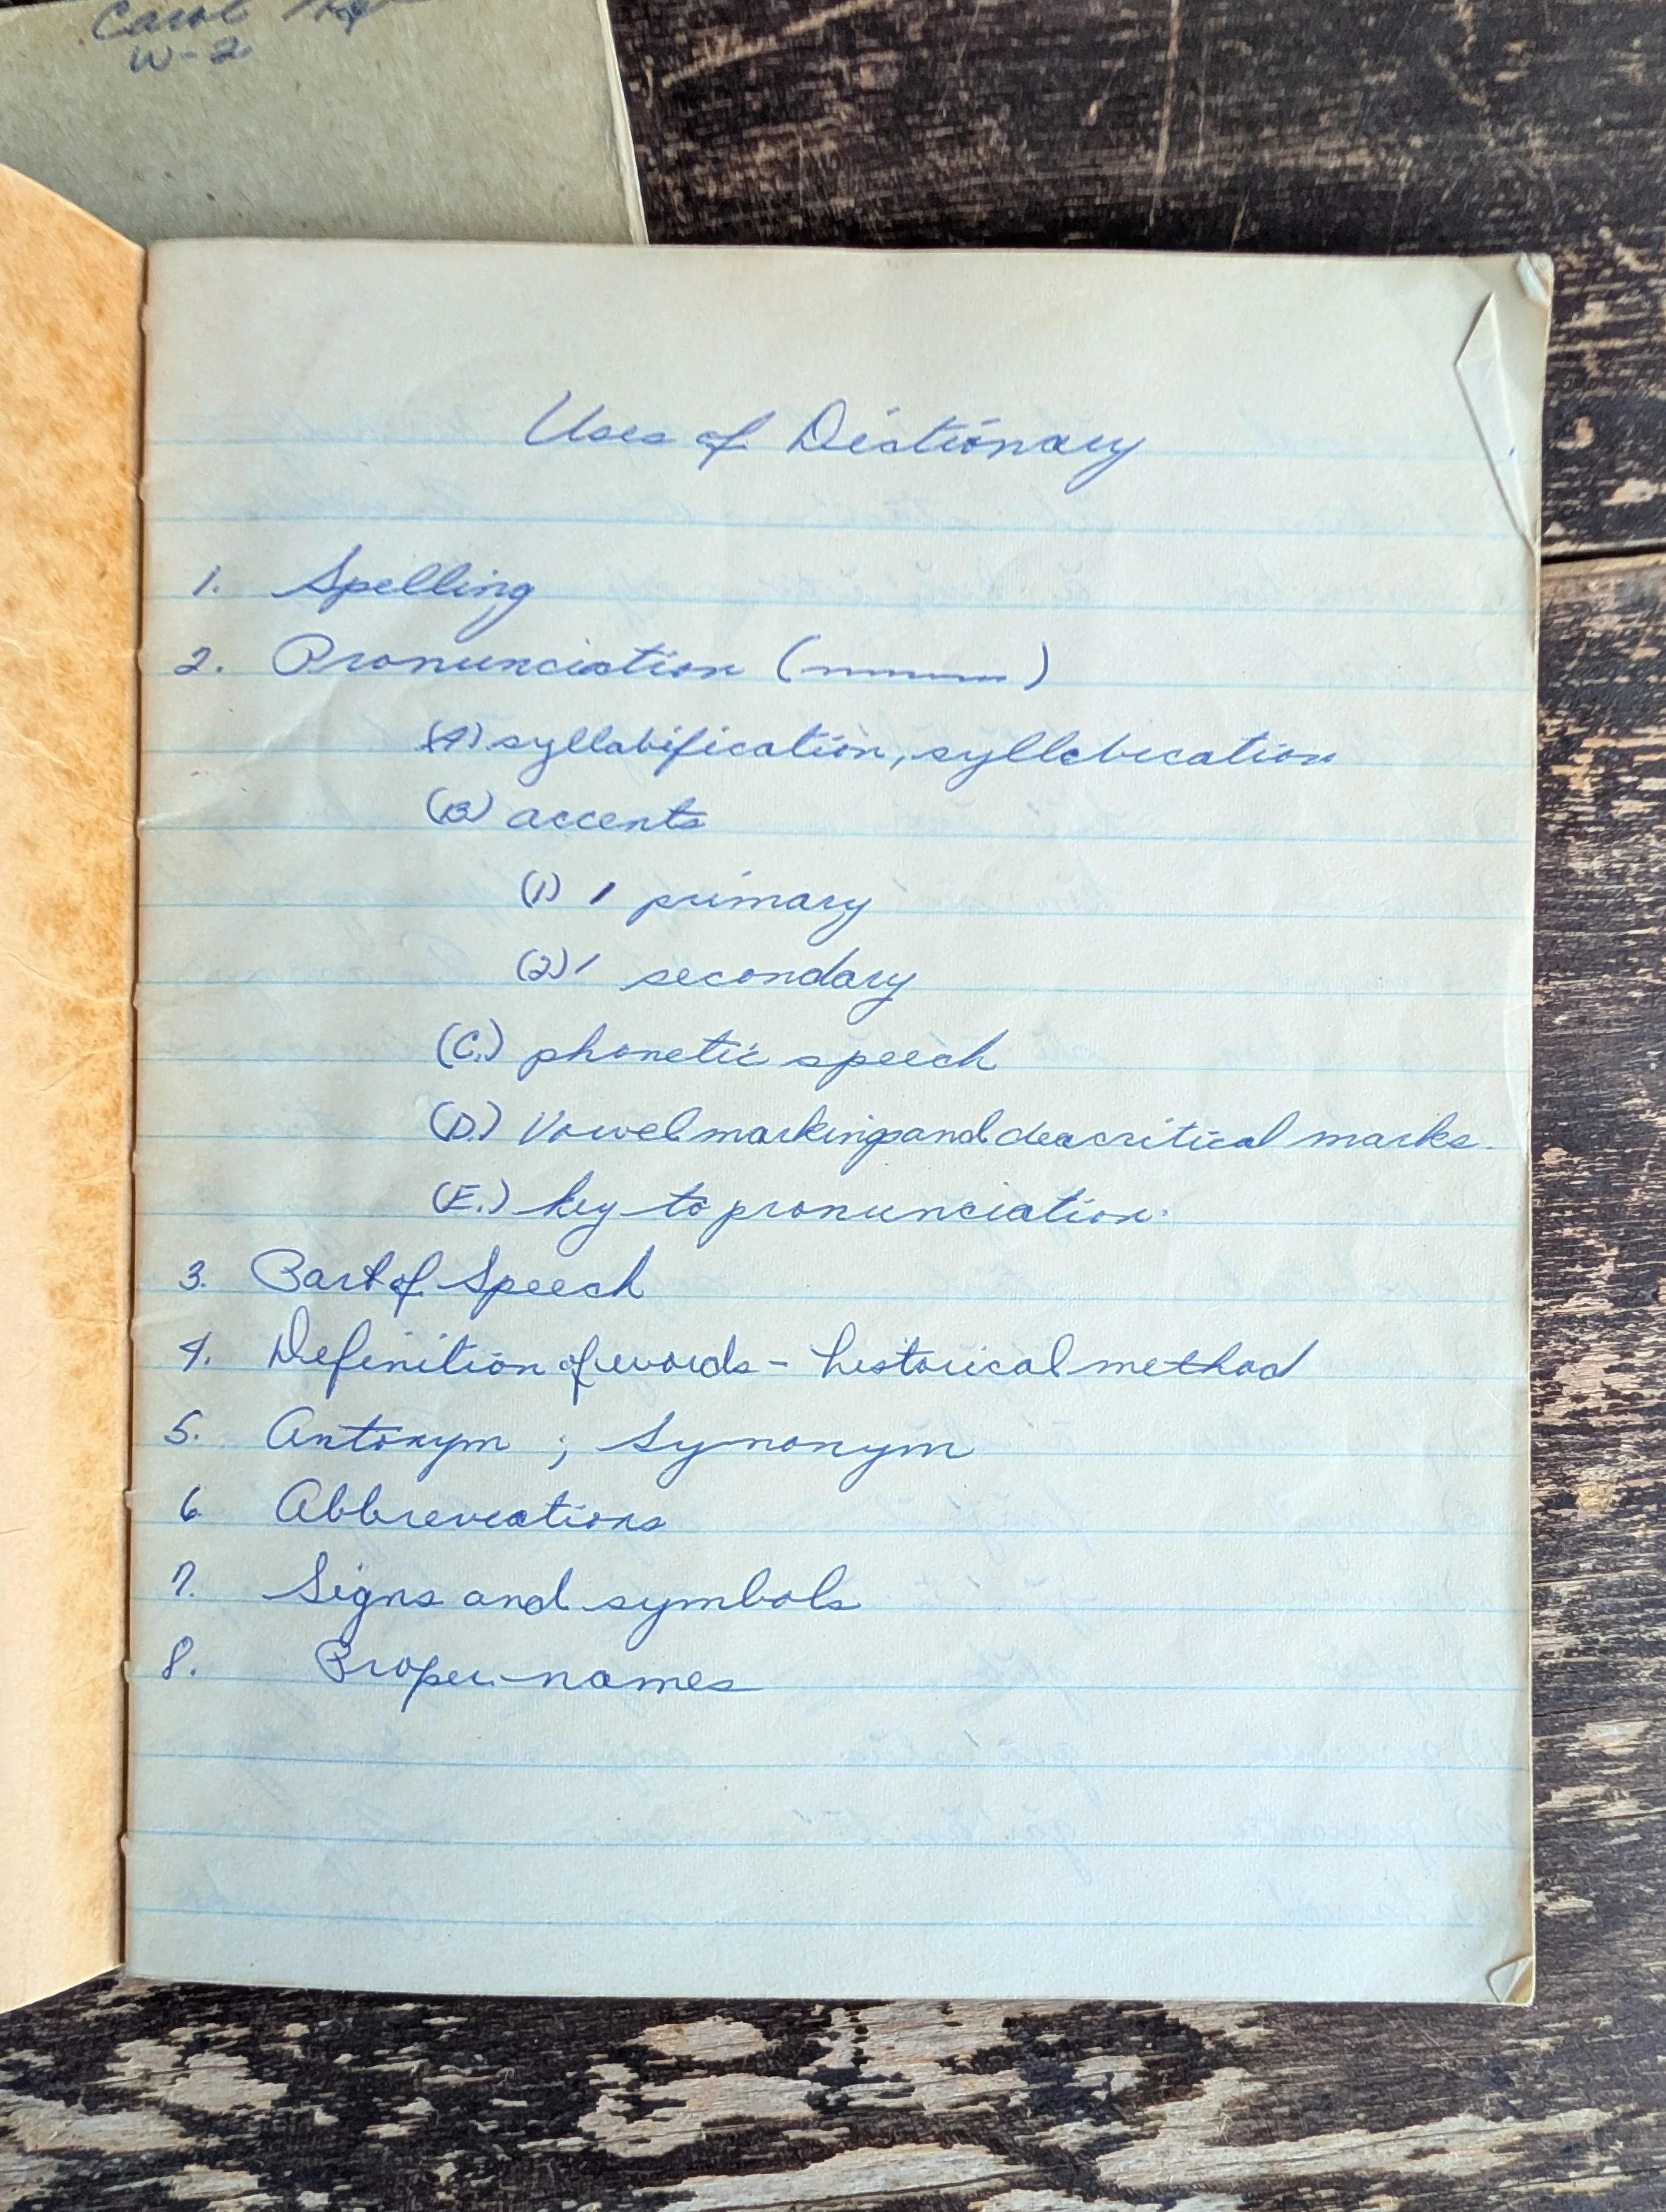 Carol
W-2
Uses of Dictionary
1. Spelling
2. Pronunciation ( )
(A) syllabification, syllabication
(B) accents
(1) ′ primary
(2) ′ secondary
(C.) phonetic speech
(D.) Vowel marking and deacritical marks.
(E.) key to pronunciation.
3. Part of Speech
4. Definition of words - historical method
5. Antonym ; Synonym
6. Abbreviations
7. Signs and symbols
8. Proper names